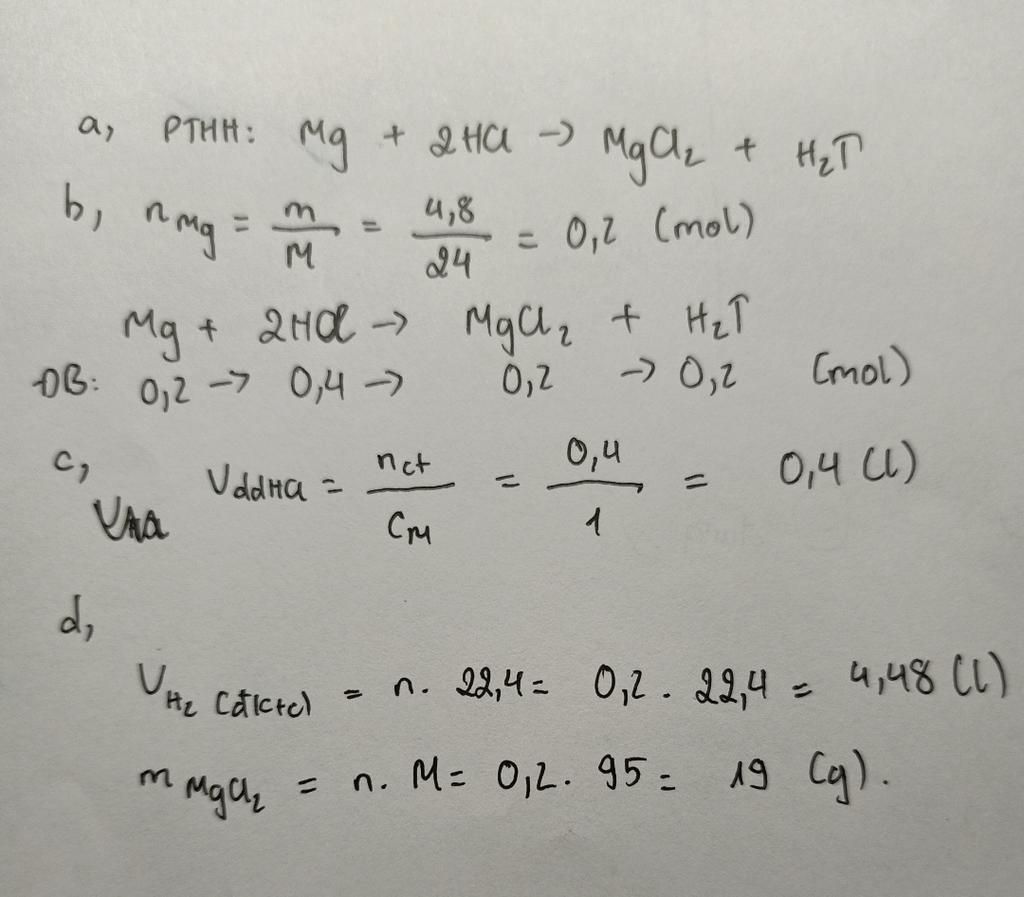 a, PTHH: Mg + 2HCl → MgCl₂ + H₂↑
b, nMg = m/M = 4,8/24 = 0,2 (mol)
Mg + 2HCl → MgCl₂ + H₂↑
ĐB: 0,2 → 0,4 → 0,2 → 0,2 (mol)
c, VddHCl = nct/CM = 0,4/1 = 0,4 (l)
d,
VH₂ (đktc) = n. 22,4 = 0,2 . 22,4 = 4,48 (l)
mMgCl₂ = n. M = 0,2. 95 = 19 (g).